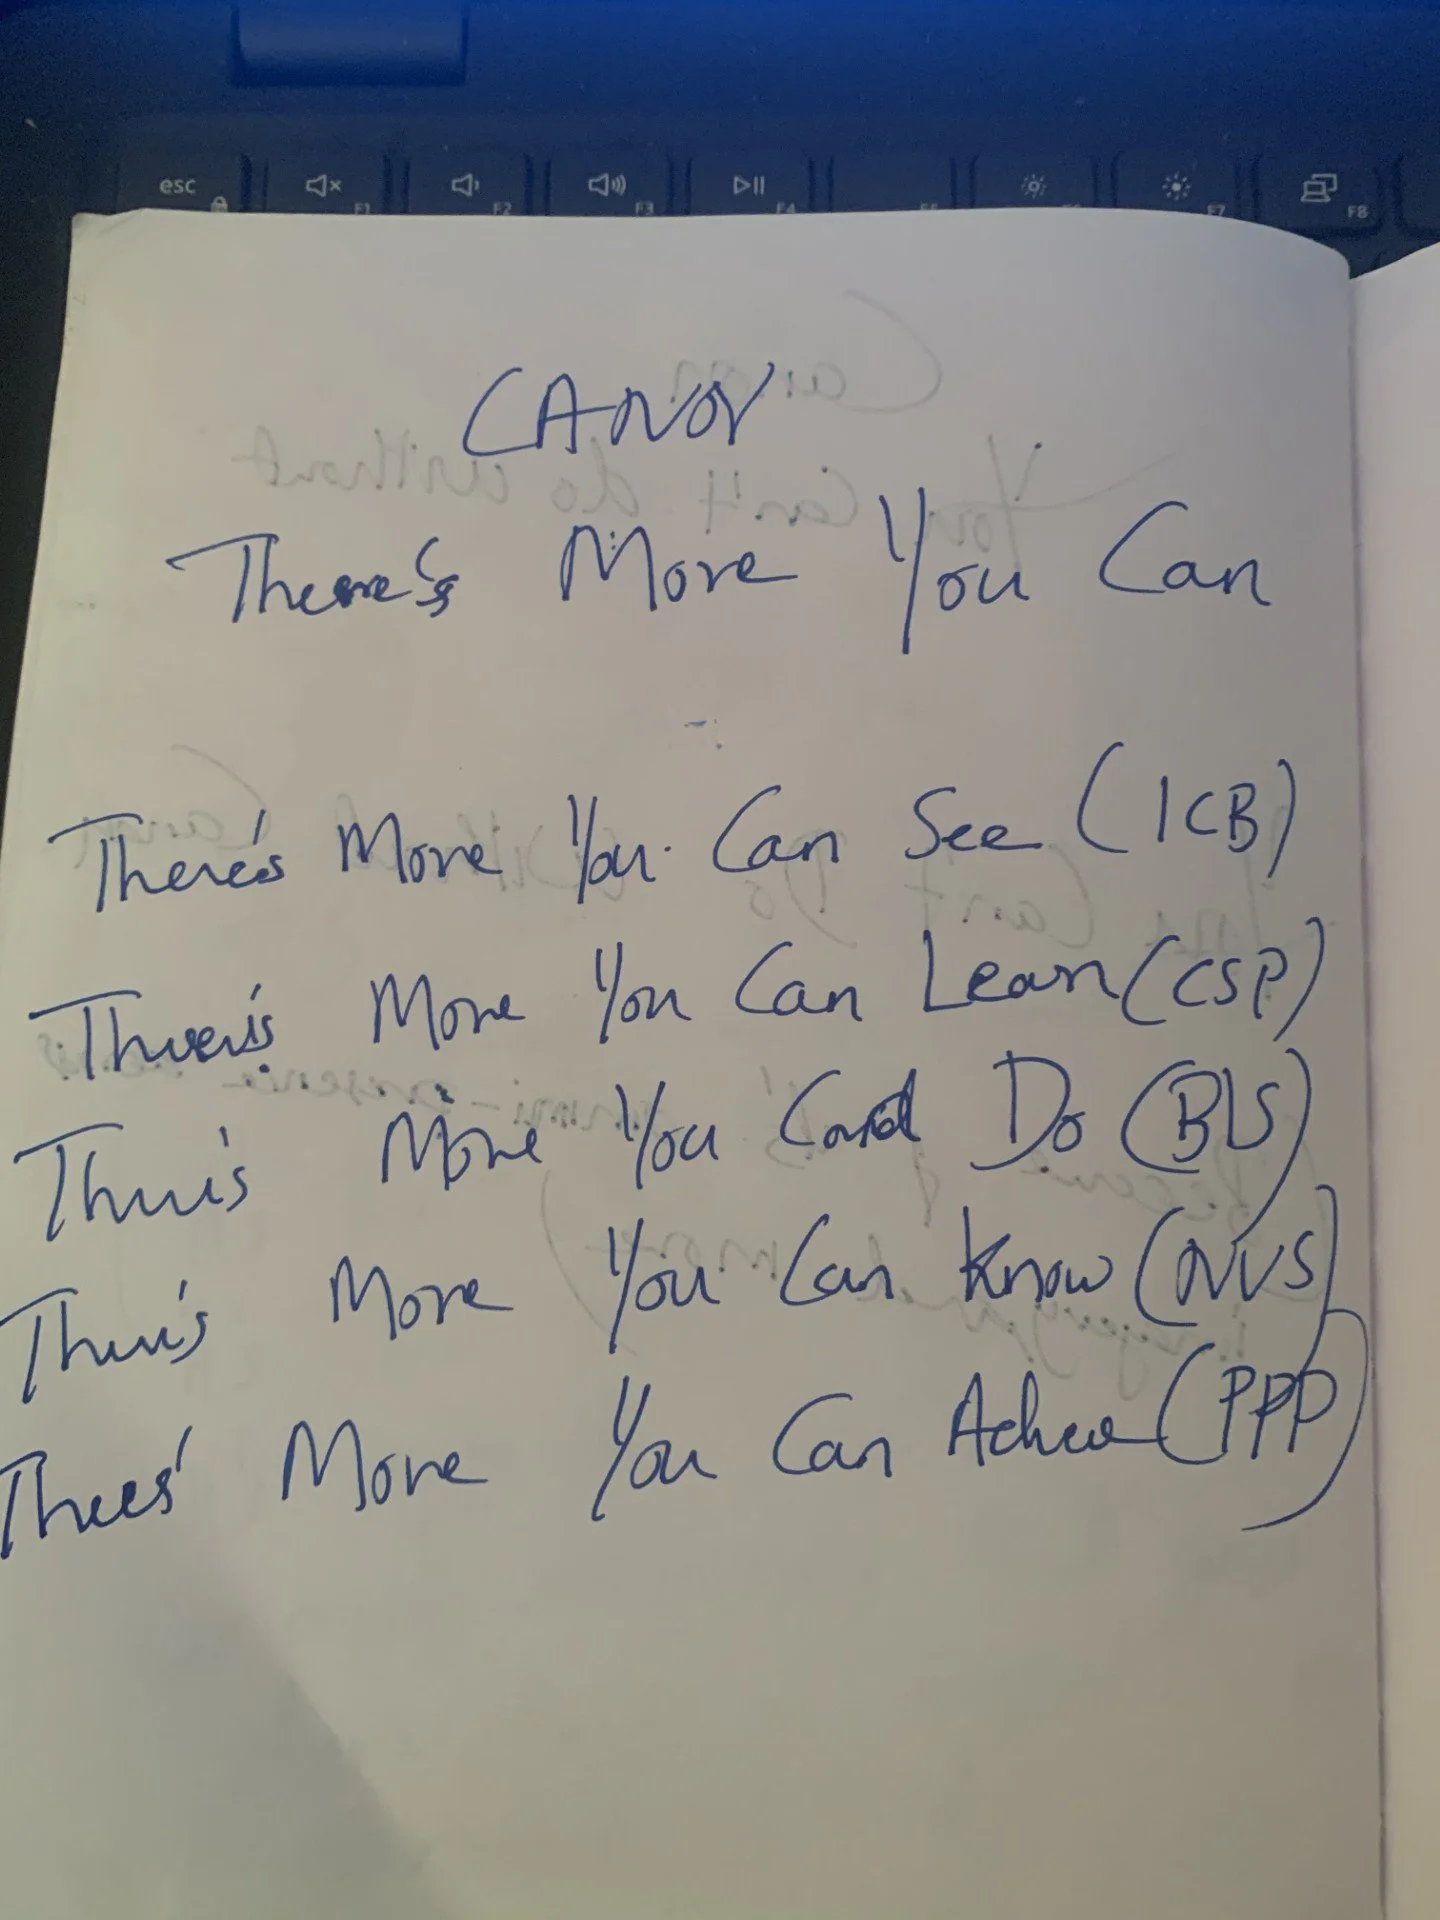 esc
F1 F2 F3 F4 F7 F8
CANON
There's More You Can
There's More You Can See (ICB)
There's More You Can Learn (CSP)
There's More You Can Do (BLS)
There's More You Can Know (NVS)
There's More You Can Achieve (PPP)